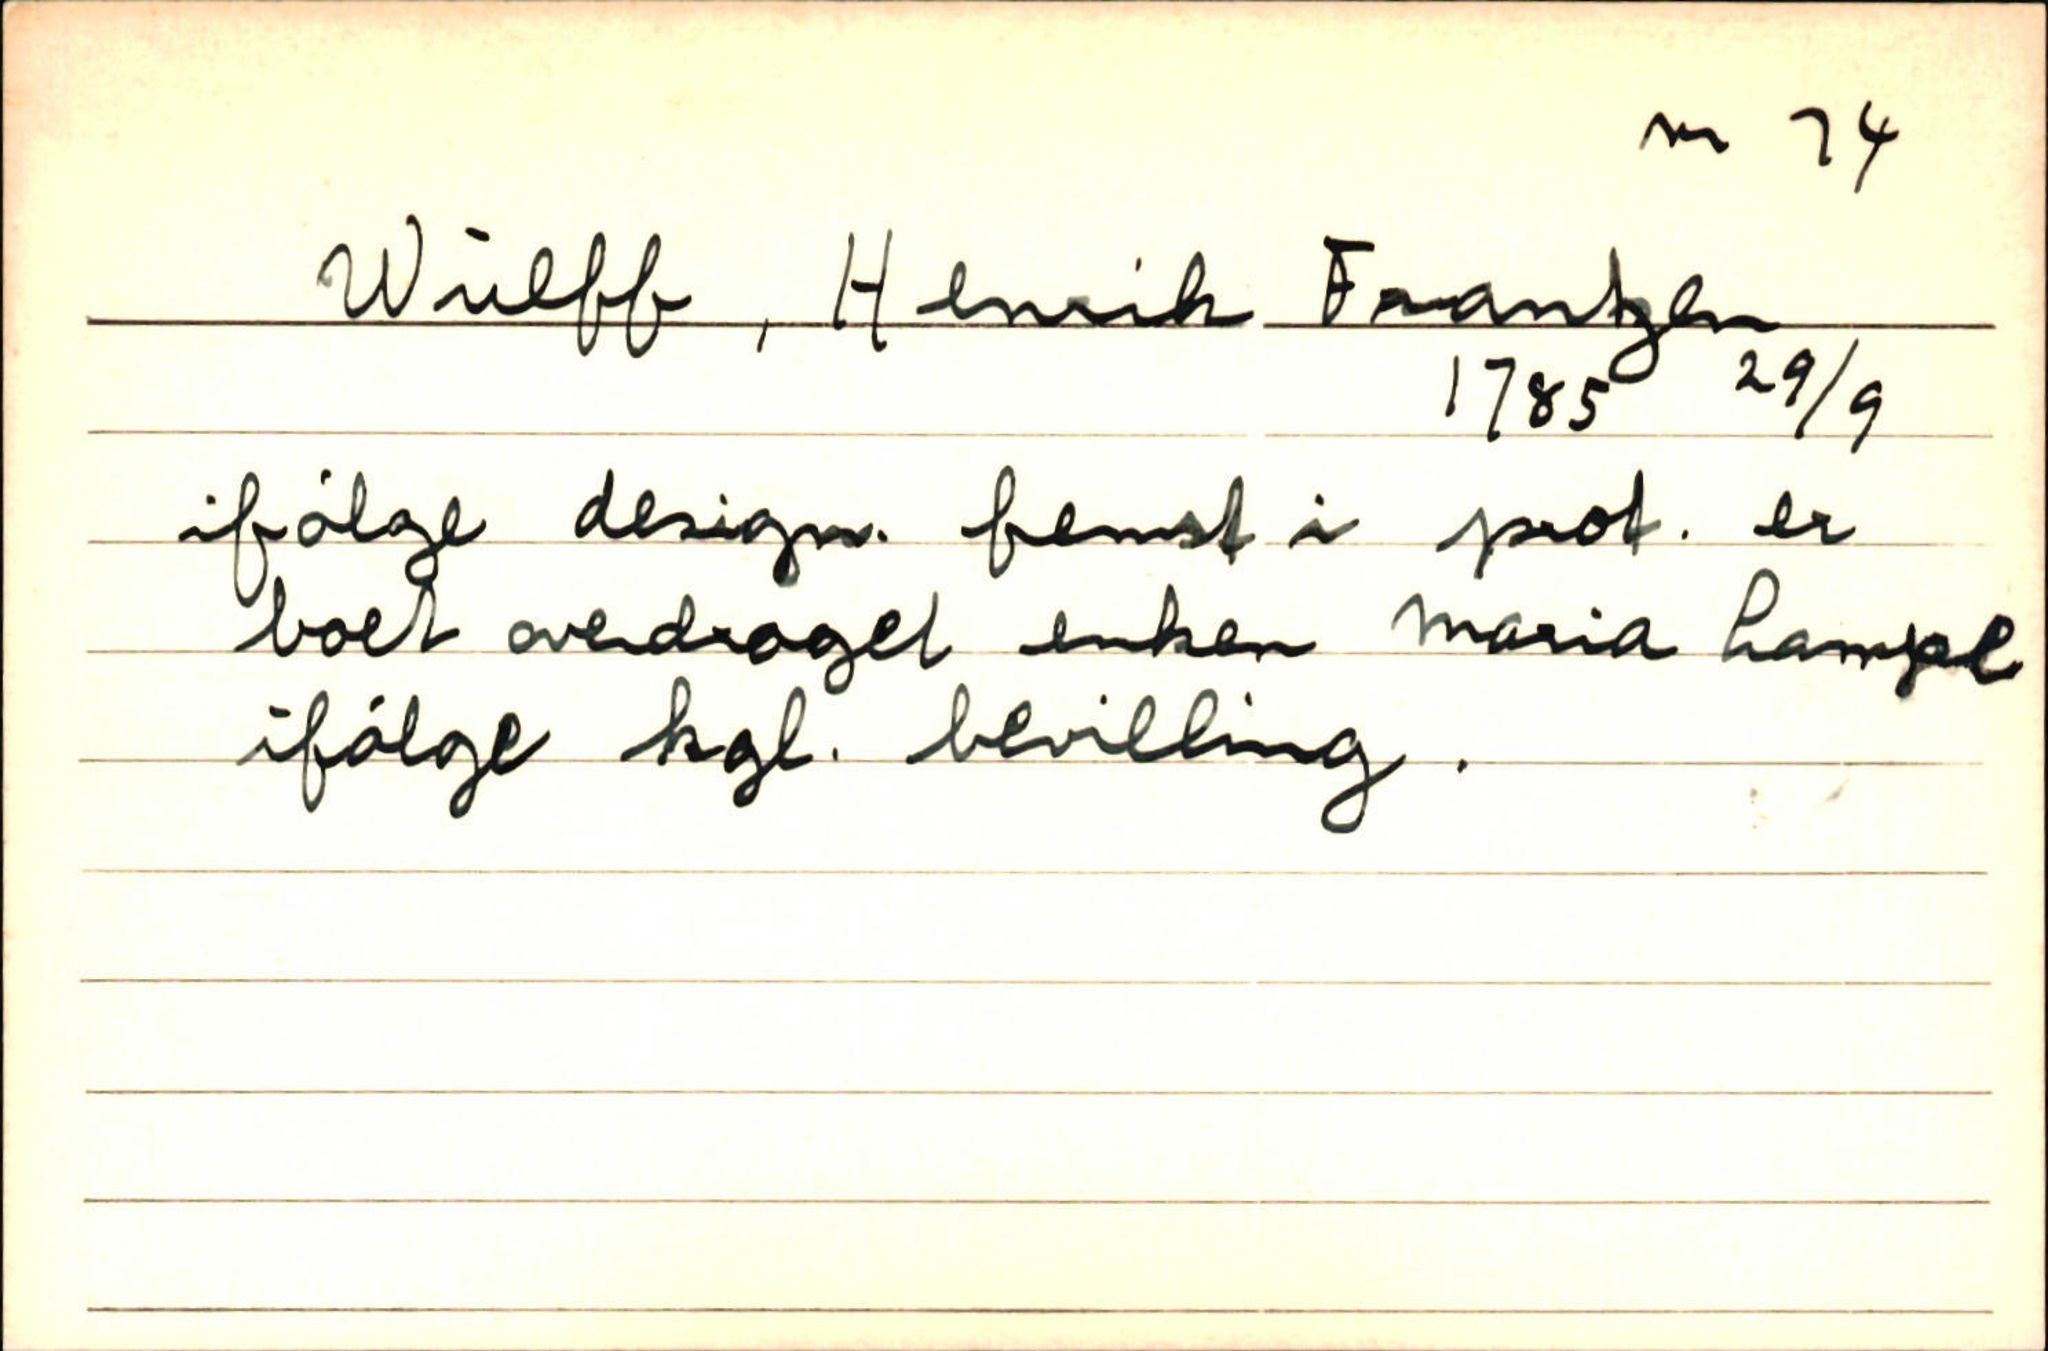 nr 74
Wülff, Henrik Frantzen
1785 29/9
ifólge design. fremst i prot. er
boet overdraget enken Maria Lampe
ifólge kgl. bevilling.